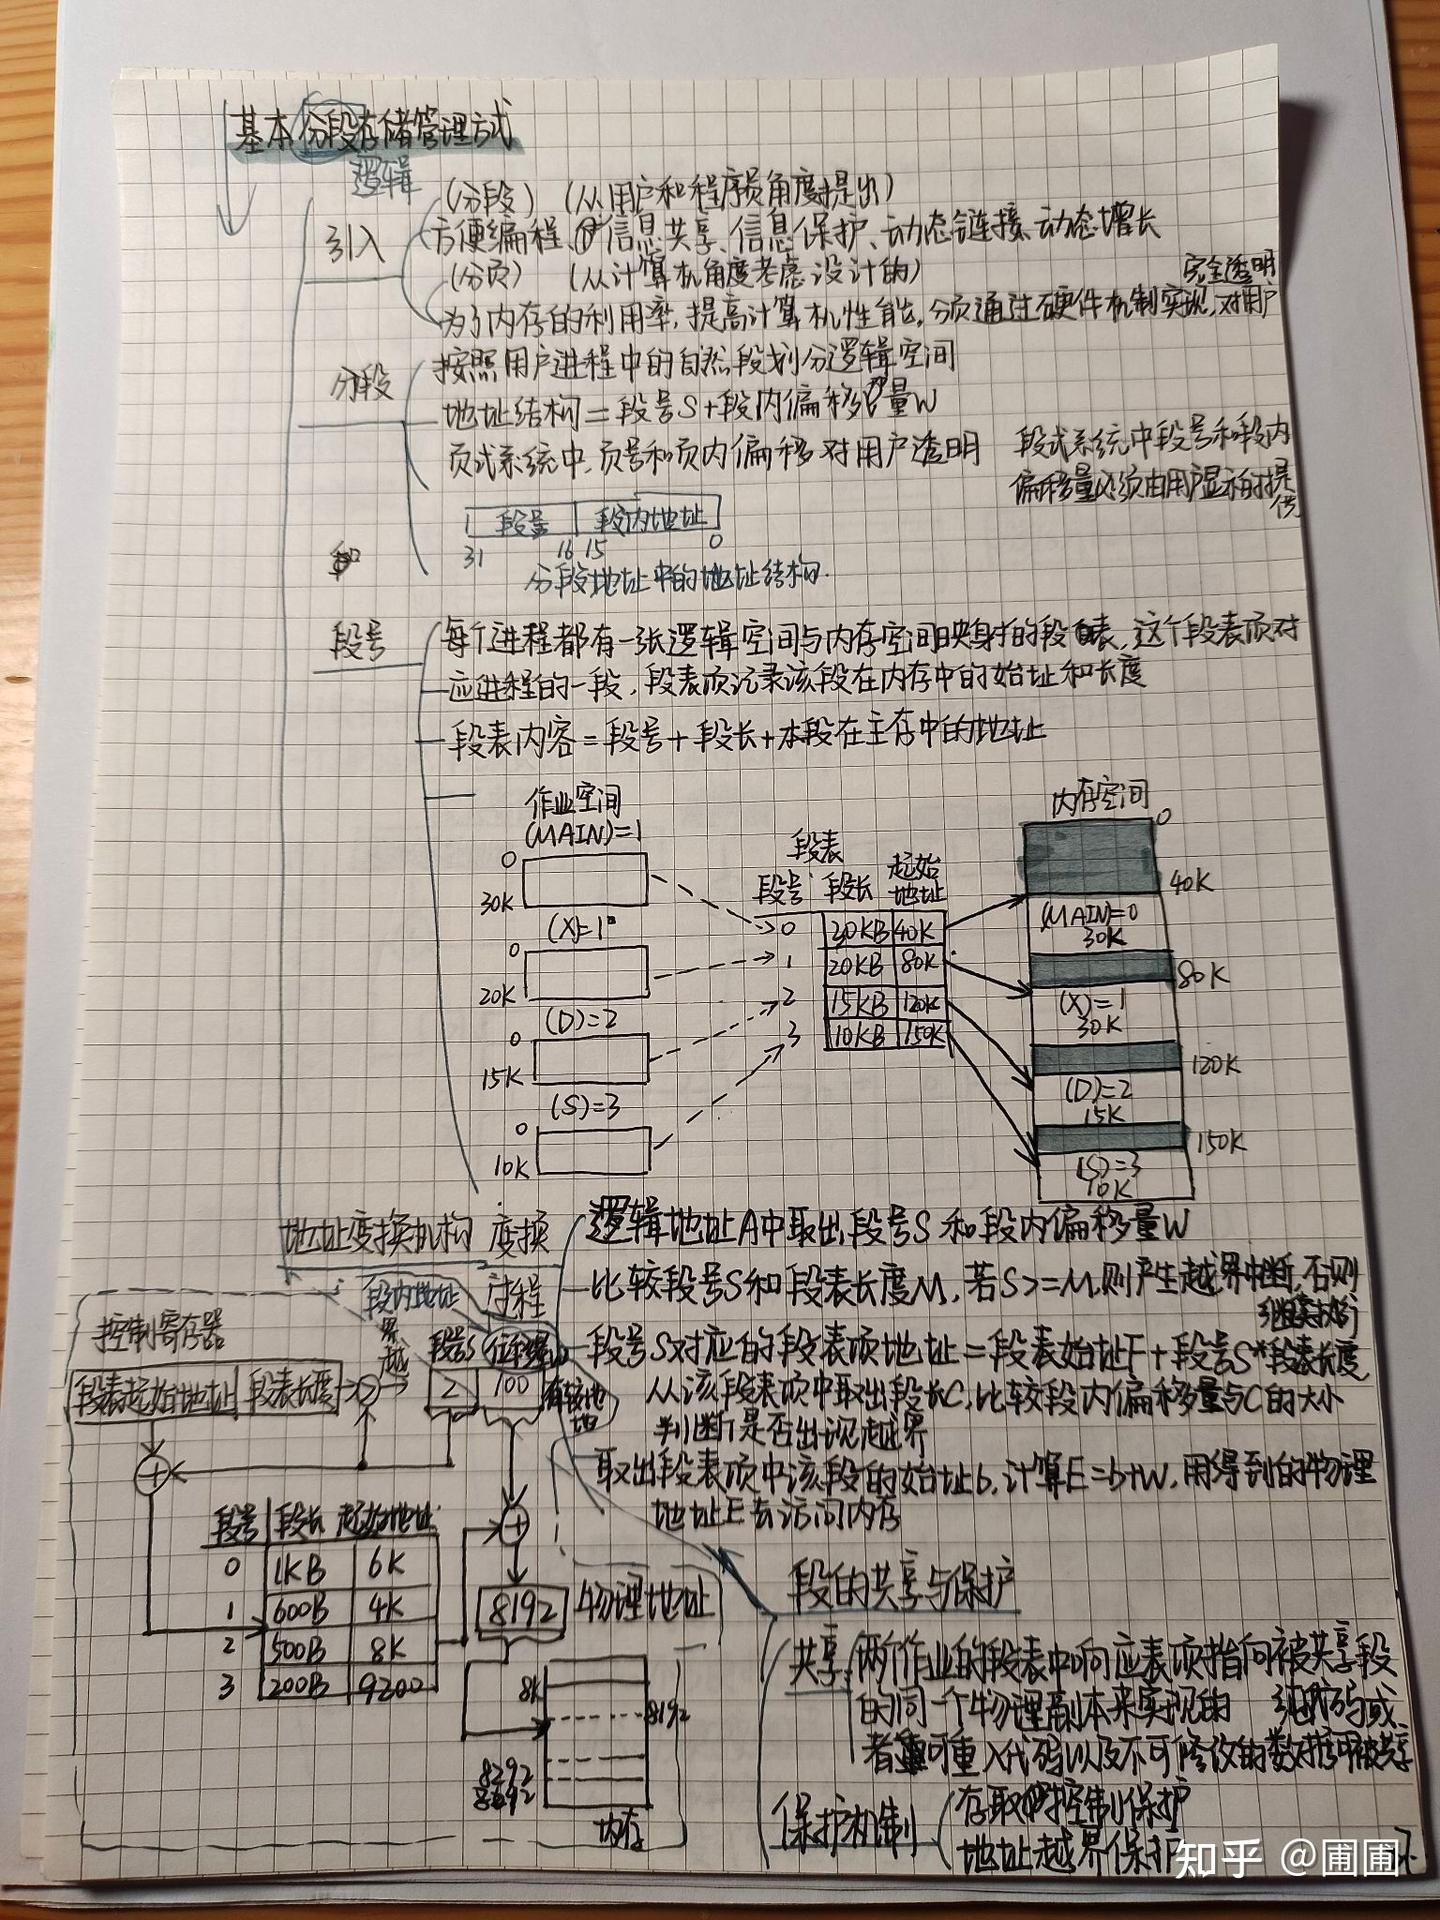 基本分段存储管理方式
逻辑
引入
(分段) (从用户和程序员角度提出)
方便编程、信息共享、信息保护、动态链接、动态增长
(分页) (从计算机角度考虑设计的)
完全透明
为了内存的利用率,提高计算机性能,分页通过硬件机制实现,对用户
分段
按照用户进程中的自然段划分逻辑空间
地址结构=段号S+段内偏移量W
页式系统中,页号和页内偏移对用户透明 段式系统中段号和段内
偏移量必须由用户显示的提
供
段号 段内地址
31 16 15 0
分段地址中的地址结构.
段号
每个进程都有一张逻辑空间与内存空间映射的段表,这个段表项对
应进程的一段,段表项记录该段在内存中的始址和长度
段表内容=段号+段长+本段在主存中的地址
作业空间
(MAIN)=1
0
30K
(X)=1
0
20K
(D)=2
0
15K
(S)=3
0
10K
段表
段号 段长 起始
地址
0 30KB 40K
1 20KB 80K
2 15KB 120K
3 10KB 150K
内存空间
0
40K
(MAIN)=0
30K
80K
(X)=1
30K
120K
(D)=2
15K
150K
(S)=3
10K
地址变换机构 变换
过程
逻辑地址A中取出段号S和段内偏移量W
比较段号S和段表长度M,若S>=M,则产生越界中断,否则
继续执行
段号S对应的段表项地址=段表始址F+段号S*段表长度
从该段表项中取出段长C,比较段内偏移量与C的大小
判断是否出现越界
取出段表项中该段的始址b,计算E=b+W,用得到的物理
地址E去访问内存
段内地址
控制寄存器
越界
段号S
段表起始地址 段表长度
2 100
段号 段长 起始地址
0 1KB 6K
1 600B 4K
2 500B 8K
3 200B 9200
8192 物理地址
8K
8192
8292
8692
内存
段的共享与保护
共享 两个作业的段表中响应表项指向被共享段
的同一个物理副本来实现的 纯代码或
者可重入代码以及不可修改的数据可被共享
保护机制
存取控制保护
地址越界保护
知乎 @圃圃